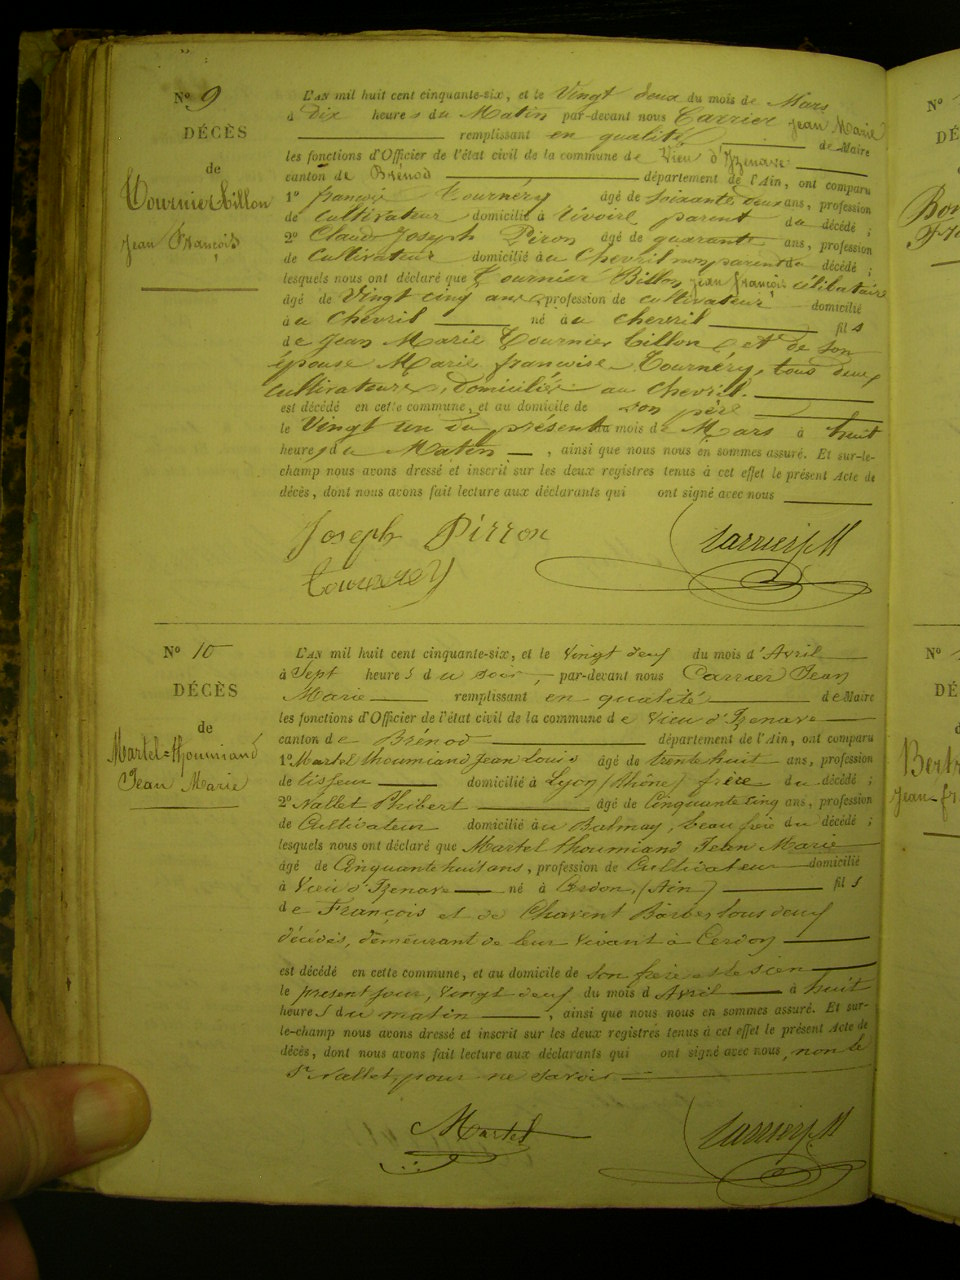 N° 9
DÉCÈS
de
Tournier-billon
Jean François
L'AN mil huit cent cinquante-six, et le Vingt deux du mois de Mars
à dix heures du Matin par-devant nous Carrier Jean Marie
remplissant en qualité de Maire
les fonctions d'Officier de l'état civil de la commune de Vieu d'Izenave
canton de Brénod département de l'Ain, ont comparu
1° françois Tournéry âgé de soixante deux ans, profession
de Cultivateur domicilié à rivoire, parent du décédé ;
2° Claude Joseph Piron âgé de quarante ans, profession
de Cultivateur domicilié au Chevril non parent du décédé ;
lesquels nous ont déclaré que Tournier Billon Jean françois célibataire
âgé de Vingt cinq ans, profession de cultivateur domicilié
à u Chevril né à u chevril fils
de Jean Marie Tournier billon et de son
épouse Marie françoise Tournéry, tous deux
Cultivateurs, domiciliés au Chevril.
est décédé en cette commune, et au domicile de son père
le Vingt un du présent du mois de Mars à huit
heures du Matin, ainsi que nous nous en sommes assuré. Et sur-le-
champ nous avons dressé et inscrit sur les deux registres tenus à cet effet le présent Acte de
décès, dont nous avons fait lecture aux déclarants qui ont signé avec nous
Joseph Pirron
Carrier JM
N° 10
DÉCÈS
de
Martel-thoumiand
Jean Marie
L'AN mil huit cent cinquante-six, et le vingt deux du mois d'Avril
à Sept heures du soir, par-devant nous Carrier Jean
Marie remplissant en qualité de Maire
les fonctions d'Officier de l'état civil de la commune de Vieu d'Izenave
canton de Brénod département de l'Ain, ont comparu
1° Martel thoumiand Jean Louis âgé de trente huit ans, profession
de tisseur domicilié à Lyon (Rhône) frère du décédé ;
2° Nallet Philibert âgé de Cinquante cinq ans, profession
de Cultivateur domicilié à u Balmay, beau frère du décédé ;
lesquels nous ont déclaré que Martel thoumiand Jean Marie
âgé de Cinquante huit ans, profession de Cultivateur domicilié
à Vieu d'Izenave né à Cerdon, (Ain) fils
de François et de Charent tous deux
décédés, demeurant de leur vivant à Cerdon
est décédé en cette commune, et au domicile de son frère et le sien
le present jour, vingt deux du mois d Avril à huit
heures du matin, ainsi que nous nous en sommes assuré. Et sur-
le-champ nous avons dressé et inscrit sur les deux registres tenus à cet effet le présent Acte de
décès, dont nous avons fait lecture aux déclarants qui ont signé avec nous, non le
Sr Nallet, pour ne savoir
Martel
Carrier JM